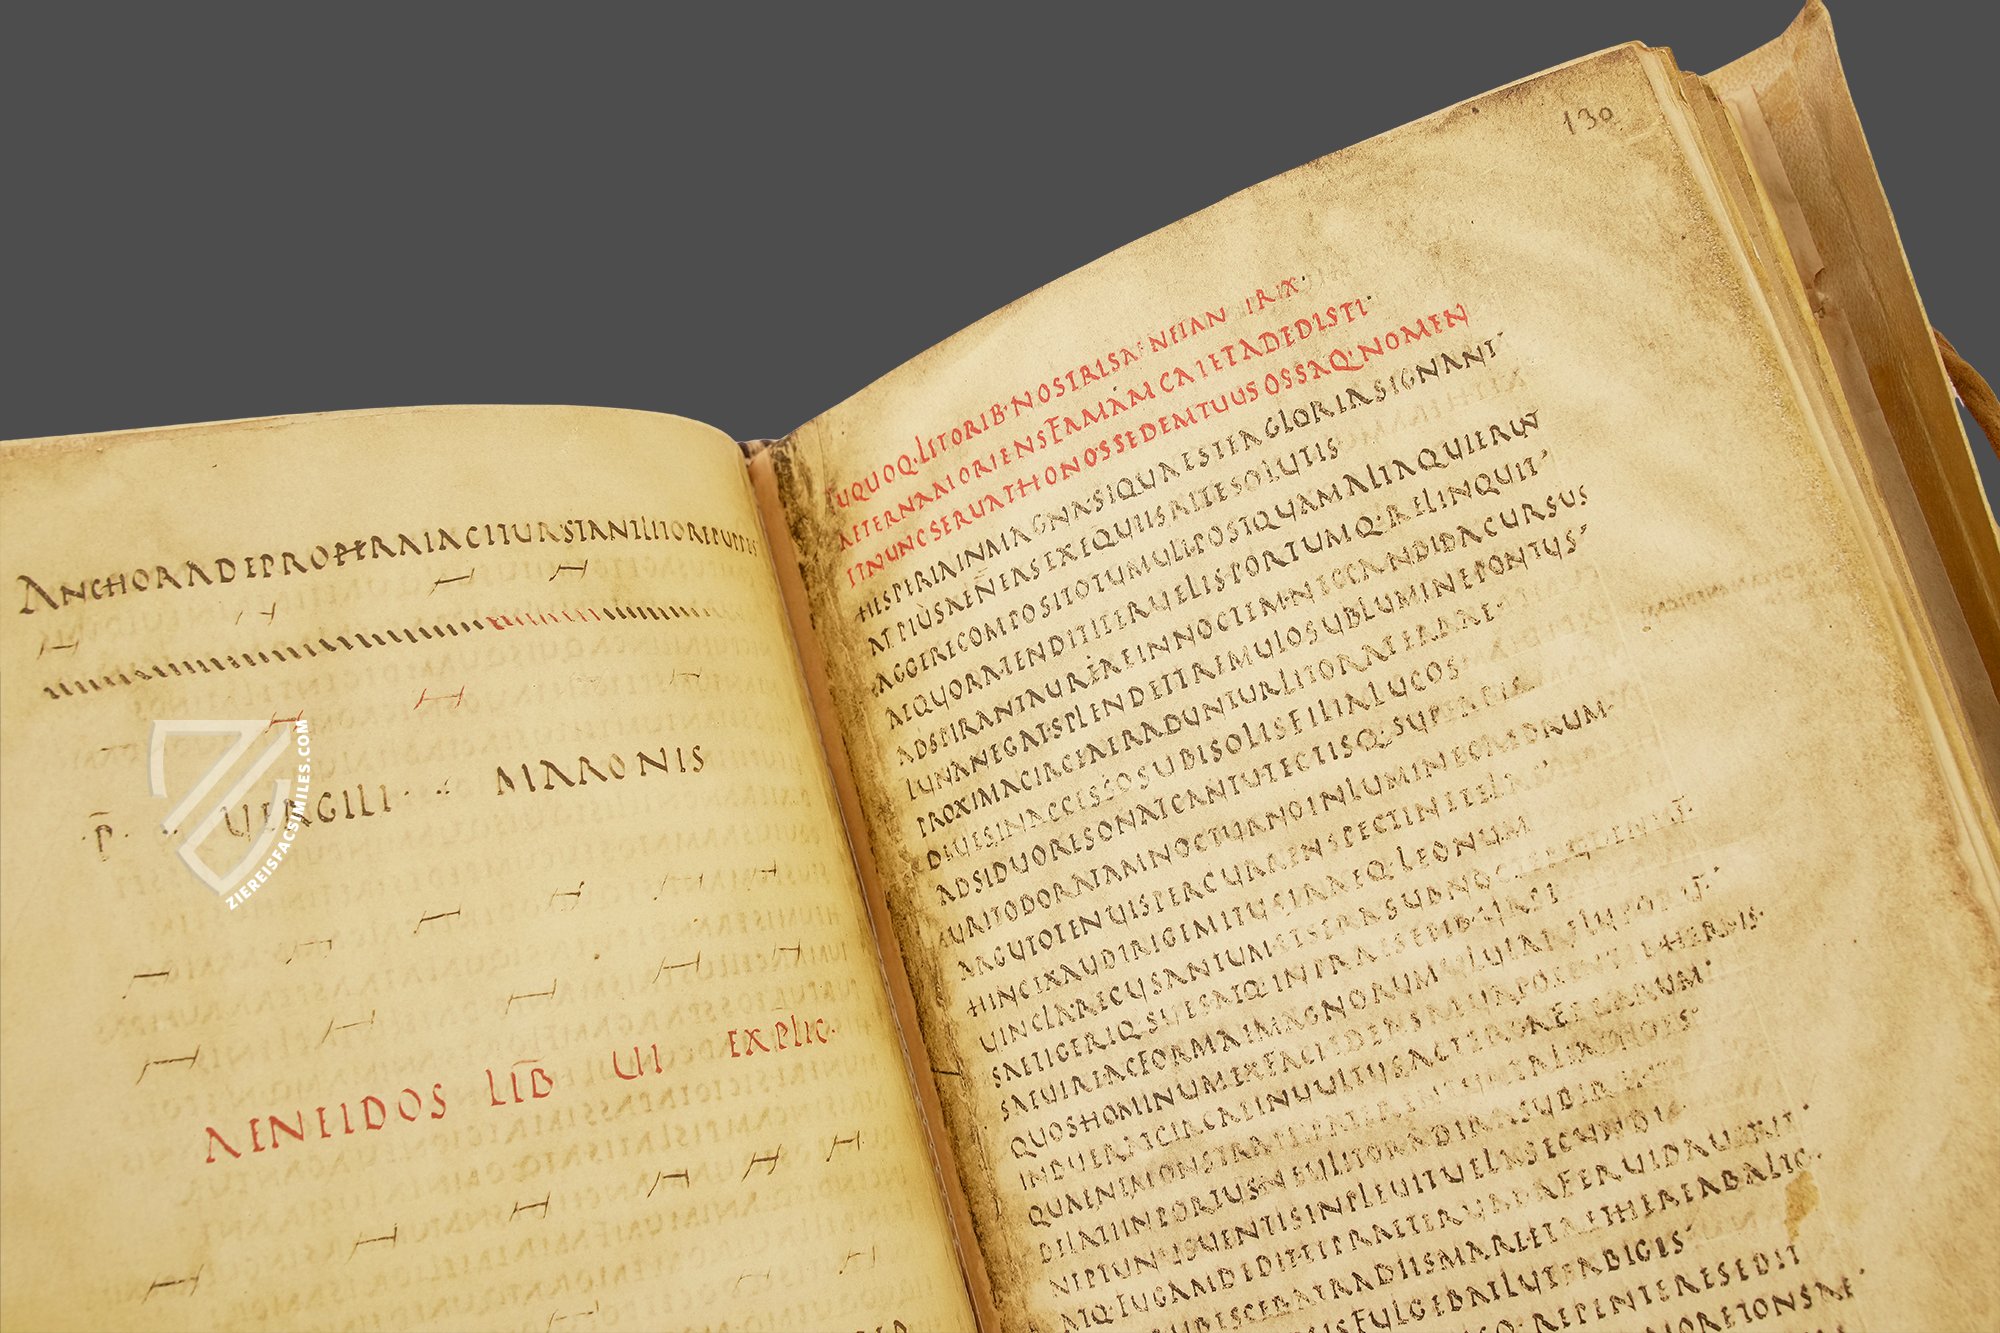 ANCHORADEPROPERAIACITURSTANTLITOREPUPPES
·P̄· UERGILI MARONIS
AENEIDOS LIB̄ UI EXPLIC·
ZIEREISFACSIMILES.COM
130
TUQUOQ·LITORIB·NOSTRISAENEIAN IRIX·
AETERNAMORIENSFAMAMCAIETADEDISTI·
ETNUNCSERUATHONOSSEDEMTUUSOSSAQ·NOMEN
HESPERIAINMAGNASIQUAESTEAGLORIASIGNANT
ATPIUSAENEASEXEQUIISRITESOLUTIS
AGGERECOMPOSITOTUMULIPOSTQUAMALTAQUIERUNT
AEQUORATENDITITERUELISPORTUMQ·RELINQUIT·
ADSPIRANTAURAEINNOCTEMNECCANDIDACURSUS
LUNANEGATSPLENDETTREMULOSUBLUMINEPONTUS·
PROXIMACIRCEAERADUNTURLITORATERRAE·
DIUESINACCESSOSUBISOLISFILIALUCOS
ADSIDUORESONATCANTUTECTISQ·SUPERBIS
URITODORATAMNOCTURNOINLUMINECAEDRUM·
ARGUTOTENUISPERCURRENSPECTINETELAS
HINCEXAUDIRIGEMITUSIRAEQ·LEONUM
UINCLARECUSANTUMETSERASUBNOCTERUDENTUM·
SAETIGERIQ·SUESATQ·INPRAESEPIB·URSI
SAEUIREACFORMAEMAGNORUMULULARELUPORUM·
QUOSHOMINUMEXFACIEDEASAEUAPOTENTIBHERBIS·
INDUERATCIRCEINUULTUSACTERGAFERARUM·
QUAENEMONSTRAPATERENTURTALIAPIITROES·
DELATIINPORTUSNEULITORADIRASUBIRENT
NEPTUNUSUENTISINPLEUITUELASECUNDIS
ATQ·FUGAMDEDITETPRAETERUADAFERUIDAUEXIT
IAMQ·RUBESCEBATRADIISMAREETAETHEREABALTO·